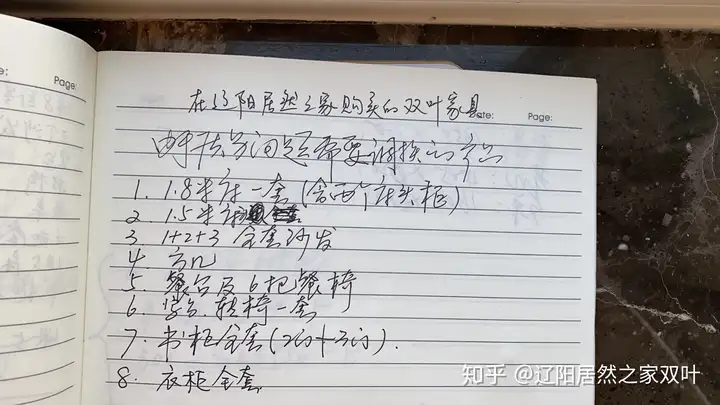 Page:
在辽阳居然之家购买的双叶家具
Date: Page:
由于质量问题需要调换的产品
1. 1.8米床一套(含两个床头柜)
2. 1.5米床
3. 1+2+3 全套沙发
4. 方几
5. 餐台及6把餐椅
6. 学台.转椅一套
7. 书柜全套(2门+3门).
8. 衣柜全套
知乎 @辽阳居然之家双叶